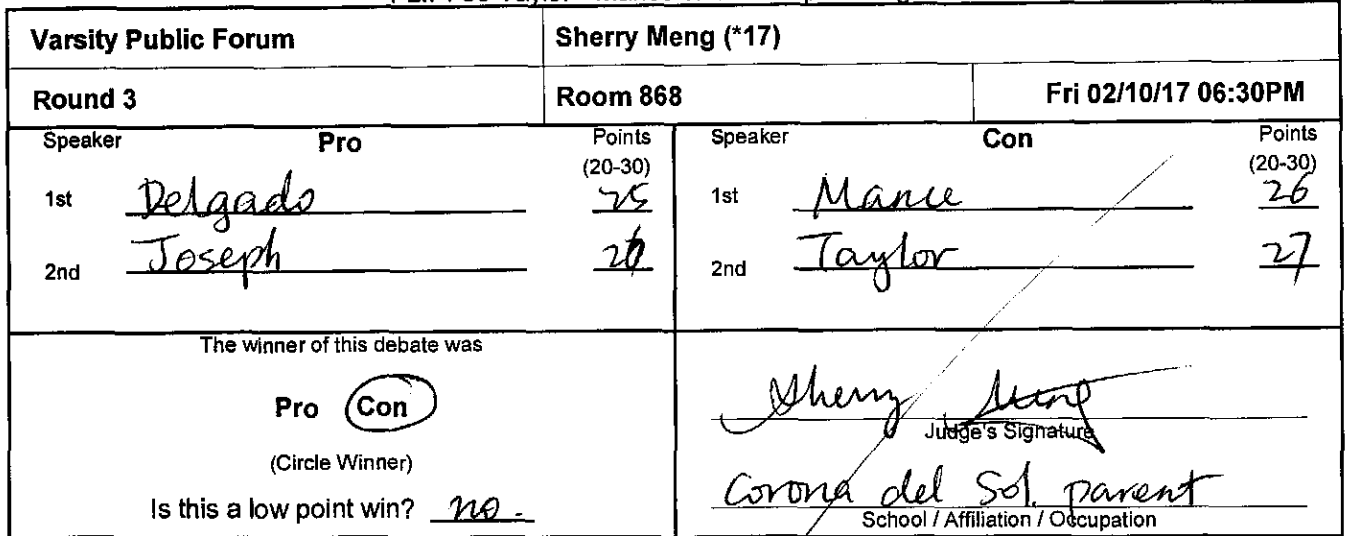 Varsity Public Forum Sherry Meng (*17)
Round 3 Room 868 Fri 02/10/17 06:30PM
Speaker Pro Points (20-30)
1st Delgado 25
2nd Joseph
Speaker Con Points (20-30)
1st Mance 26
2nd Taylor 27
The winner of this debate was
Pro Con
(Circle Winner)
Is this a low point win? no.
Sherry Meng
Judge's Signature
Corona del Sol. parent
School / Affiliation / Occupation